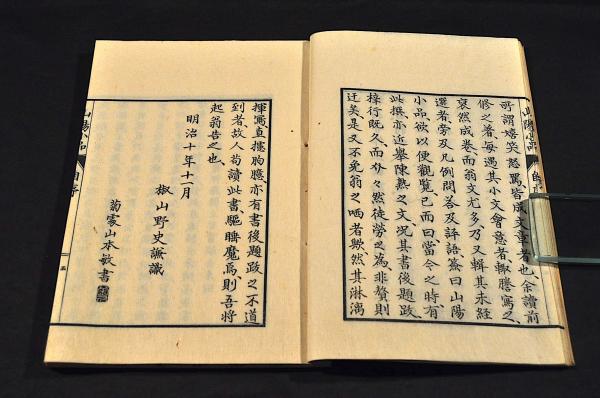 山陽小品 自序
所謂嬉笑怒罵皆成文章者也、余讀前
修之著、每遇其小文會意者、輙謄寫之、
裒然成卷、而翁文尤多、乃又輯其未經
選者、旁及凡例問答及評語、簽曰山陽
小品、欲以便觀覧、已而曰、當今之時、有
此撰、亦近擧陳熟之文、況其書後題跋
梓行既久、而々然徒勞之為、非贅則
迂矣、是又不免翁之哂者歟、然其淋漓
揮灑、直攄胸臆、亦有書後題跋之不道
到者、故人苟讀此書、驅睡魔焉、則吾將
起翁告之也、
明治十年十一月
椒山野史謙識
菊山本敏書
山陽小品 自序 五